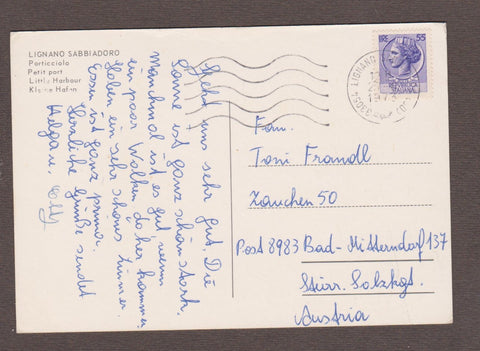 LIGNANO SABBIADORO
Porticciolo
Petit port
Little Harbour
Kleine Hafen
Geht uns sehr gut. Die
Sonne ist ganz schön stark.
Manchmal ist es gut, wenn
ein paar Wolken daher kommen.
Haben ein sehr schönes Zimmer.
Essen ist ganz prima.
Herzliche Grüße sendet
Helga u.
LIRE 55
REPUBBLICA
ITALIANA
33054 LIGNANO
Fam.
Toni Frandl
Zauchen 50
Post 8983 Bad-Mitterndorf 137
Steir. Salzkgt.
Austria